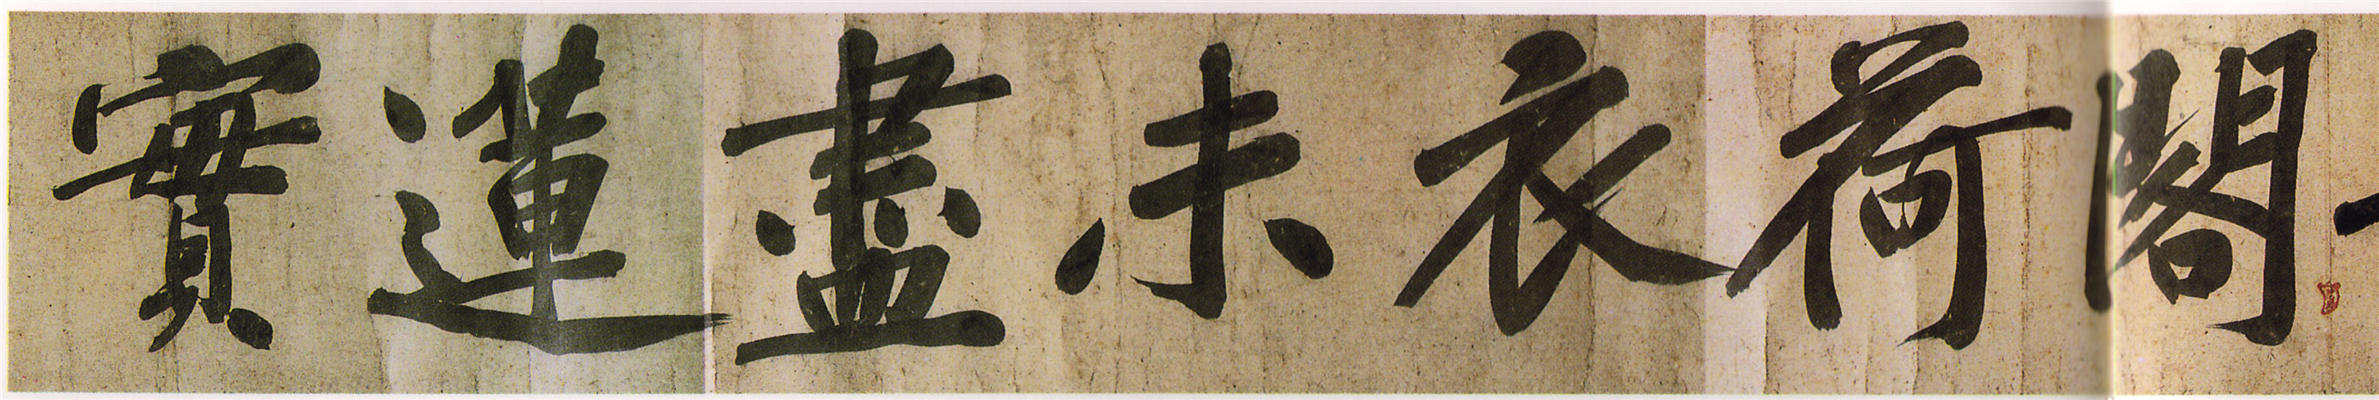 閣荷衣未盡蓮實